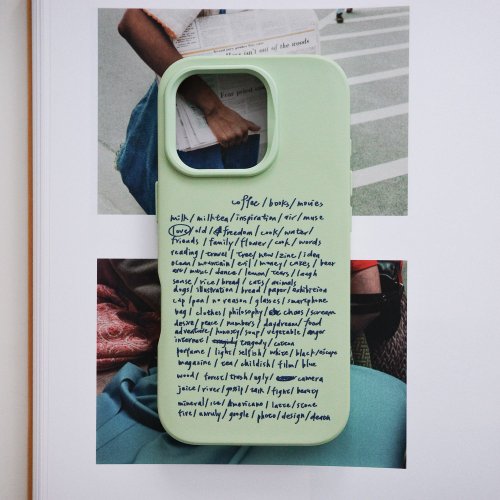 isn't out of the woods
Fear pried
coffee / books / movies
milk / milktea / inspiration / air / muse
love / old / freedom / cook / water /
friends / family / flower / cook / words
reading / travel / tree / new / zine / idea
ocean / mountain / evil / money / cakes / beer
art / music / dance / lemon / tears / laugh
sense / rice / bread / cats / animals
dogs / illustration / bread / paper / exhibition
cap / pen / no reason / glasses / smartphone
bag / clothes / philosophy / chaos / scream
desire / peace / numbers / daydream / food
adventure / honesty / soap / vegetable / anger
internet / tragedy / cotton
perfume / light / selfish / white / black / escape
magazine / tea / childish / film / blue
wood / forest / trash / ugly / camera
juice / river / gossip / talk / fight / beauty
mineral / ice / Americano / latte / stone
fire / unruly / google / photo / design / death